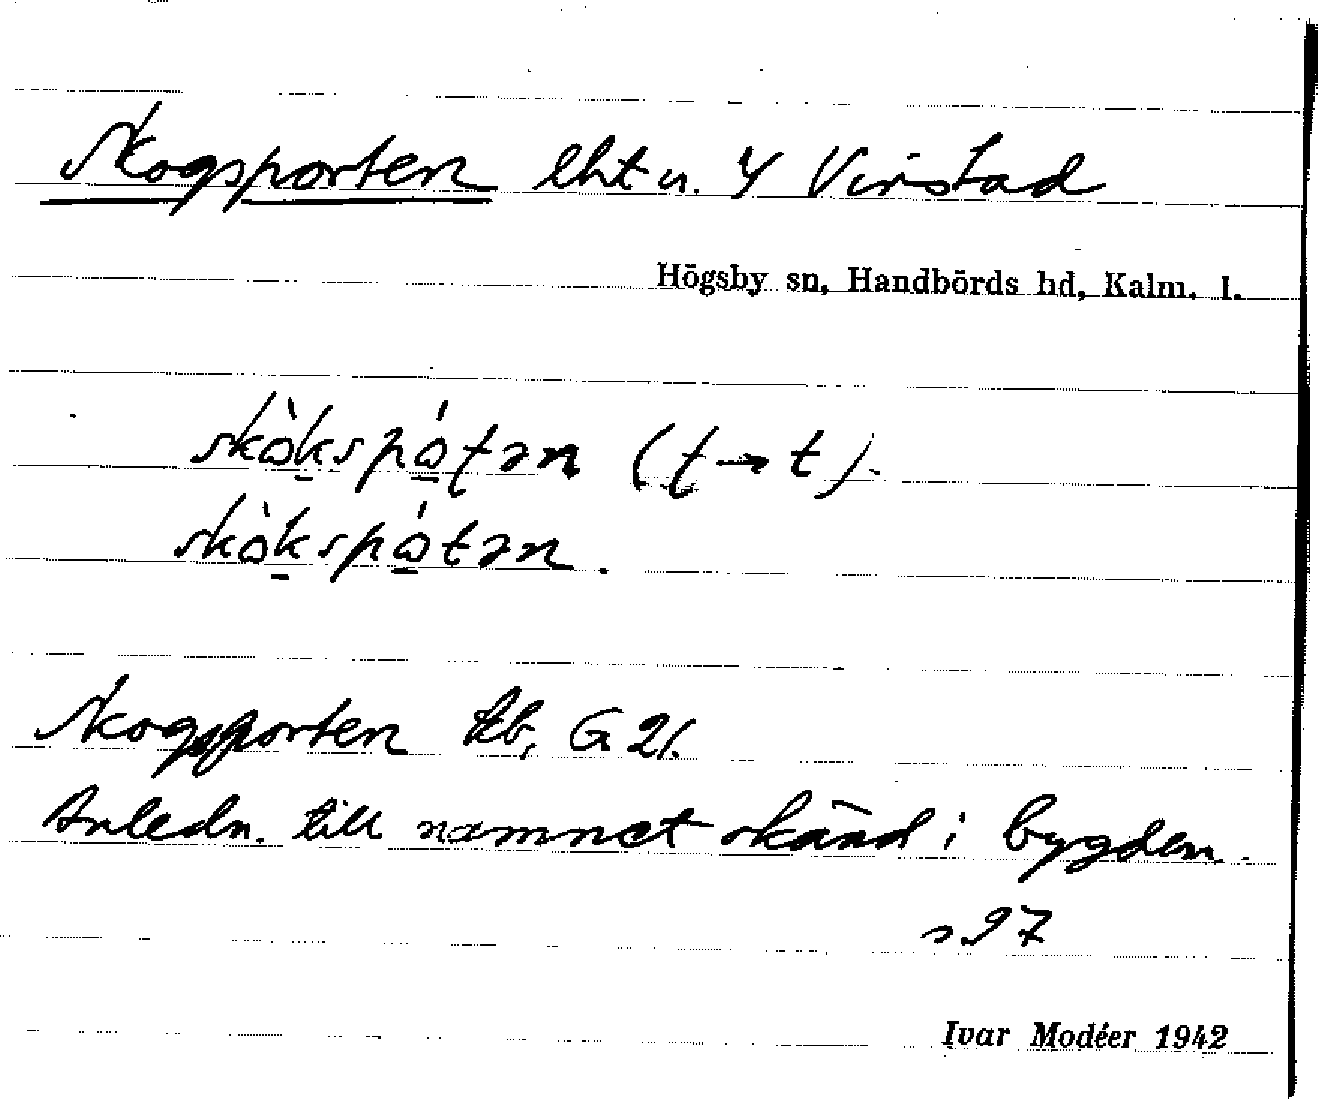 Skogsporten lht u. Y Virstad
Högsby sn, Handbörds hd, Kalm. l.
skò̠kspó̠ʈən (ʈ → t).
skò̠kspó̠tən.
Skogsporten tb, G 21.
Anledn. till namnet okänd i bygden.
s 97
Ivar Modéer 1942